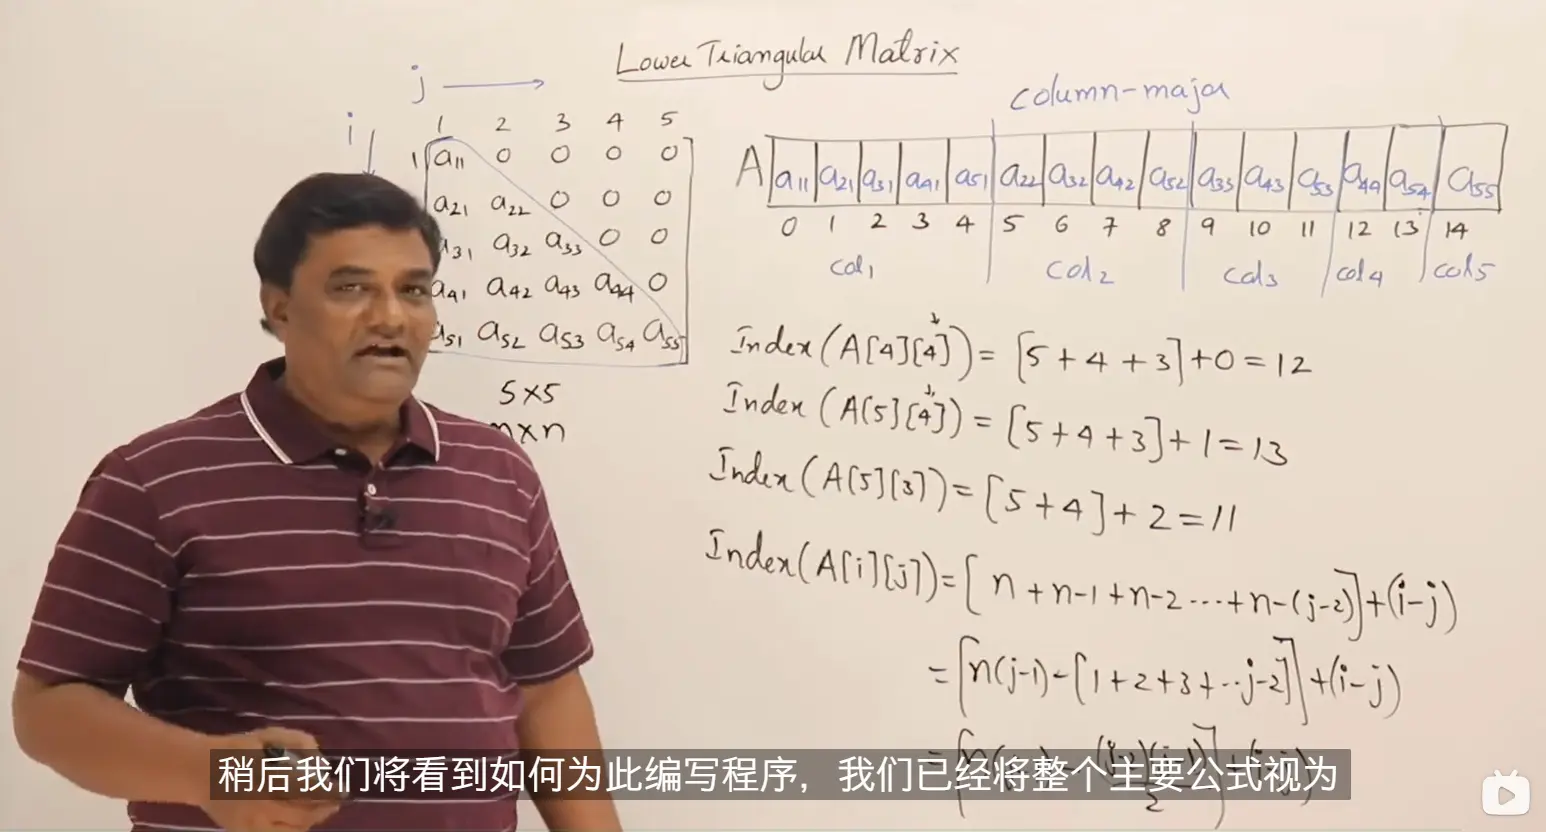 Lower Triangular Matrix
j
column-major
i
1 2 3 4 5
1 a11 0 0 0 0
a21 a22 0 0 0
a31 a32 a33 0 0
a41 a42 a43 a44 0
a51 a52 a53 a54 a55
5×5
n×n
A a11 a21 a31 a41 a51 a22 a32 a42 a52 a33 a43 a53 a44 a54 a55
0 1 2 3 4 5 6 7 8 9 10 11 12 13 14
col1 col2 col3 col4 col5
Index(A[4][4]) = [5+4+3]+0=12
Index(A[5][4]) = [5+4+3]+1=13
Index(A[5][3]) = [5+4]+2=11
Index(A[i][j])=[n+n-1+n-2...+n-(j-2)]+(i-j)
=[n(j-1)-[1+2+3+..j-2]]+(i-j)
稍后我们将看到如何为此编写程序，我们已经将整个主要公式视为